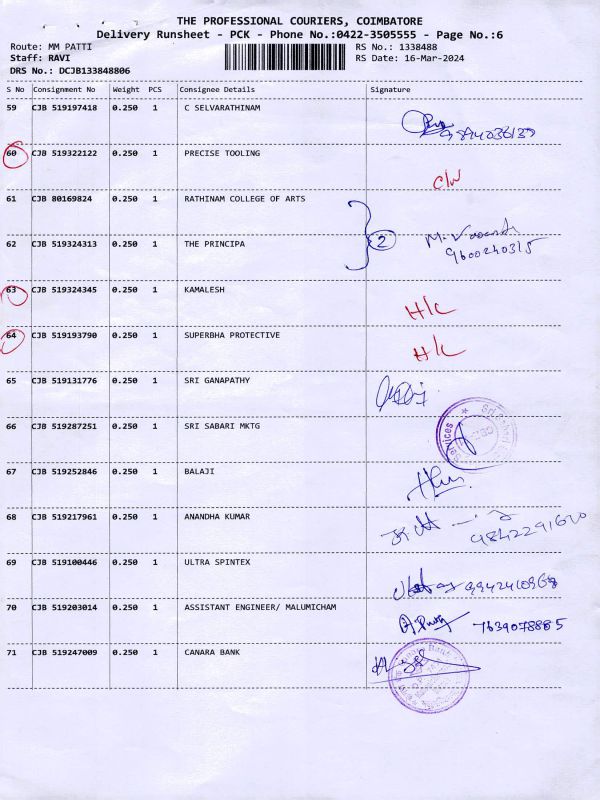 THE PROFESSIONAL COURIERS, COIMBATORE
Delivery Runsheet - PCK - Phone No.:0422-3505555 - Page No.:6
Route: MM PATTI RS No.: 1338488
Staff: RAVI RS Date: 16-Mar-2024
DRS No.: DCJB133848806
S No Consignment No Weight PCS Consignee Details Signature
59 CJB 519197418 0.250 1 C SELVARATHINAM
60 CJB 519322122 0.250 1 PRECISE TOOLING
C/W
61 CJB 80169824 0.250 1 RATHINAM COLLEGE OF ARTS
62 CJB 519324313 0.250 1 THE PRINCIPA 2
9600240315
63 CJB 519324345 0.250 1 KAMALESH
H/C
64 CJB 519193790 0.250 1 SUPERBHA PROTECTIVE
H/C
65 CJB 519131776 0.250 1 SRI GANAPATHY
66 CJB 519287251 0.250 1 SRI SABARI MKTG
67 CJB 519252846 0.250 1 BALAJI
68 CJB 519217961 0.250 1 ANANDHA KUMAR
69 CJB 519100446 0.250 1 ULTRA SPINTEX
70 CJB 519203014 0.250 1 ASSISTANT ENGINEER/ MALUMICHAM
7639078885
71 CJB 519247009 0.250 1 CANARA BANK